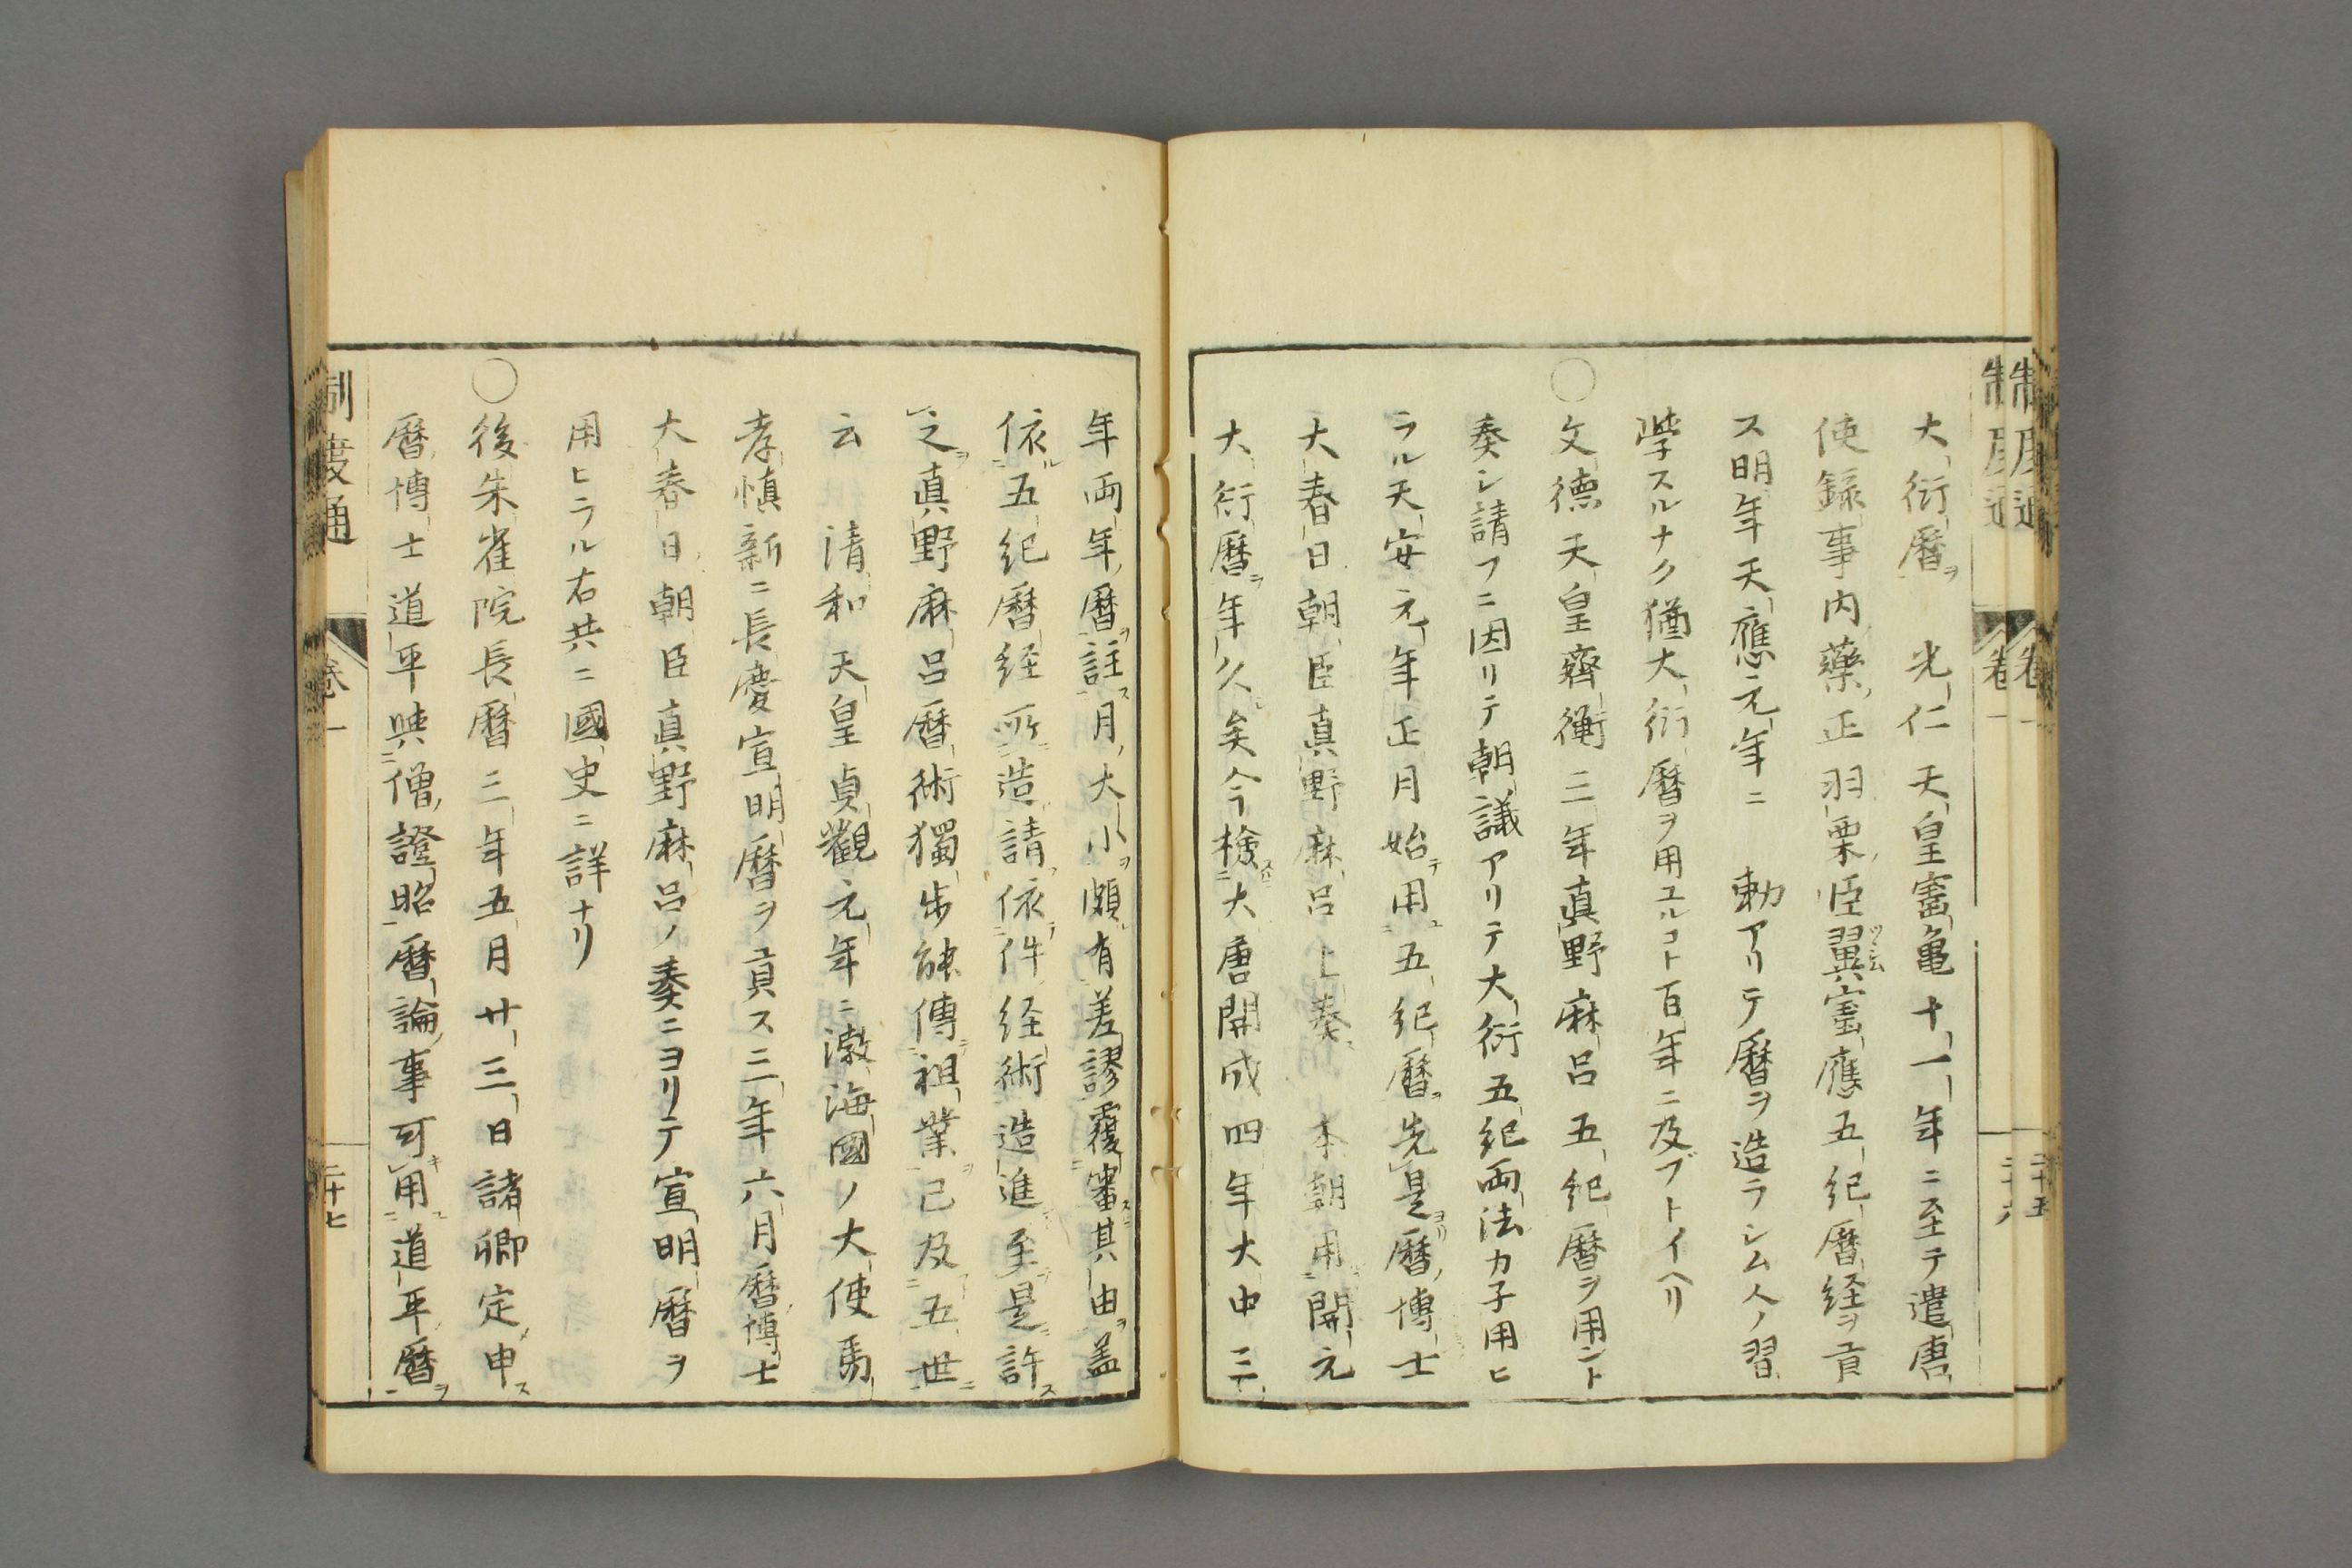 大衍曆ヲ　光仁天皇寳亀十一年ニ至テ遣唐
使録事内藥正羽栗臣翼寳應五紀曆経ヲ貢
ス明年天應元年ニ　勅アリテ曆ヲ造ラシム人ノ習
学スルナク猶大衍曆ヲ用ユルコト百年ニ及ブトイヘリ
○文德天皇齊衡三年真野麻呂五紀曆ヲ用ント
奏シ請フニ因リテ朝議アリテ大衍五紀両法カ子用ヒ
ラル天安元年正月始テ用ユ五紀曆ヲ先是ヨリ曆博士
大春日朝臣真野麻呂上奏ス　本朝用開元
大衍曆ヲ年久矣今檢大唐開成四年大中三
年両年曆ヲ註ス月大小ヲ頗有差謬覆審其由ヲ盖
依ル五紀曆経所造請依件経術造進至是許ス
之ヲ真野麻呂曆術獨步能傳祖業ヲ已及五世ニ
云　清和天皇貞觀元年ニ渤海國ノ大使馬
孝慎新ニ長慶宣明曆ヲ貢ス三年六月曆博士
大春日朝臣真野麻呂ノ奏ニヨリテ宣明曆ヲ
用ヒラル右共ニ國史ニ詳ナリ
○後朱雀院長曆三年五月廿三日諸卿定申ス
曆博士道平與僧證昭曆論事可キ用ユ道平曆ヲ
制度通　卷一　二十七